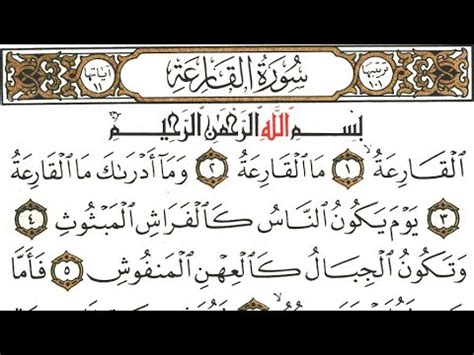 ترتيبها ١٠١ سُورَةُ ٱلْقَارِعَةِ آياتها ١١
بِسْمِ ٱللَّهِ ٱلرَّحْمَٰنِ ٱلرَّحِيمِ
ٱلْقَارِعَةُ ١ مَا ٱلْقَارِعَةُ ٢ وَمَآ أَدْرَىٰكَ مَا ٱلْقَارِعَةُ
٣ يَوْمَ يَكُونُ ٱلنَّاسُ كَٱلْفَرَاشِ ٱلْمَبْثُوثِ ٤
وَتَكُونُ ٱلْجِبَالُ كَٱلْعِهْنِ ٱلْمَنفُوشِ ٥ فَأَمَّا